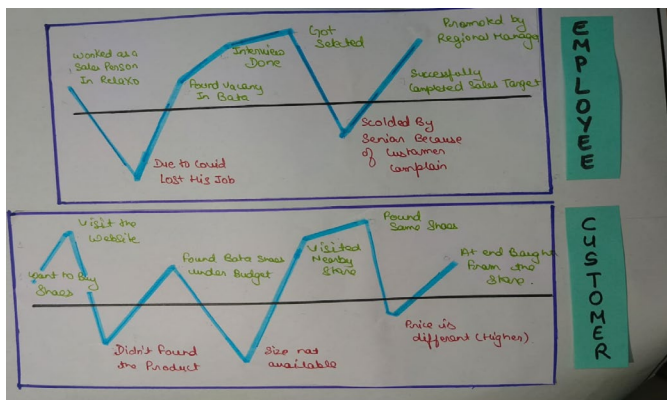 Worked as a
Sales Person
In Relaxo
Due to Covid
Lost His Job
Found Vacancy
In Bata
Interview
Done
Got
Selected
Scolded By
Senior Because
of Customer
Complain
Successfully
Completed Sales Target
Promoted by
Regional Manage
EMPLOYEE
Want to Buy
Shoes
Visit the
Website
Didn't Found
the Product
Found Bata Shoes
under Budget
Size not
available
Visited
Nearby
Store
Found
Same Shoes
Price is
different (Higher)
At end Bought
From the
Store.
CUSTOMER